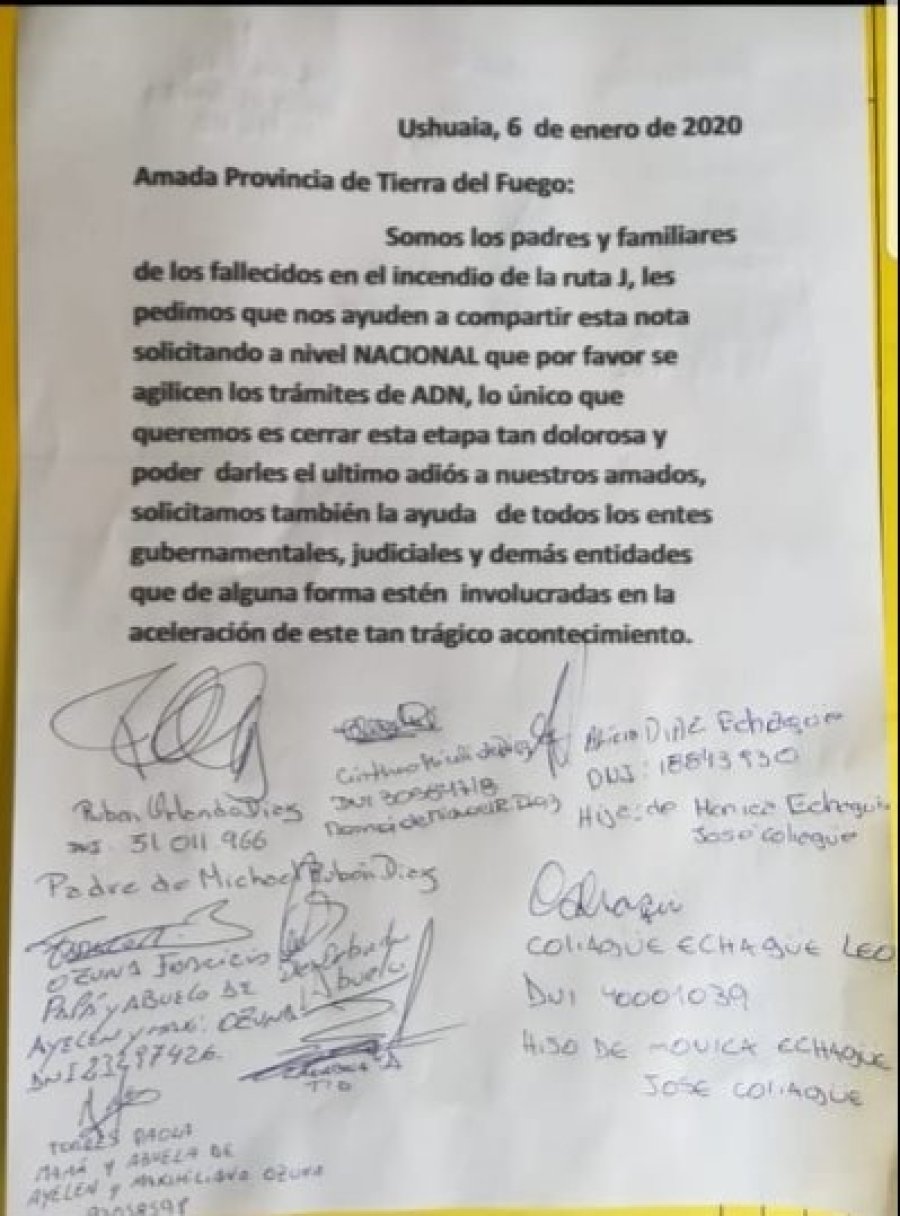 Ushuaia, 6 de enero de 2020
Amada Provincia de Tierra del Fuego:
Somos los padres y familiares
de los fallecidos en el incendio de la ruta J, les
pedimos que nos ayuden a compartir esta nota
solicitando a nivel NACIONAL que por favor se
agilicen los trámites de ADN, lo único que
queremos es cerrar esta etapa tan dolorosa y
poder darles el ultimo adiós a nuestros amados,
solicitamos también la ayuda de todos los entes
gubernamentales, judiciales y demás entidades
que de alguna forma estén involucradas en la
aceleración de este tan trágico acontecimiento.
Orlando Diez
31 011 966
Padre de Michael Rubén Diez
DNI
Alicia Diaz Echague
DNI:
Hija: de Monica Echague
Jose Coliague
OZUNA
PAPÁ y ABUELO DE
AYELEN y OZUNA
Abuelo
DNI 23197426
TIO
COLIAQUE ECHAGUE LEO
DNI 40001039
HIJO DE MONICA ECHAGUE
JOSE COLIAQUE
TORRES PAOLA
MAMÁ Y ABUELA DE
AYELEN Y MAXIMILIANO OZUNA